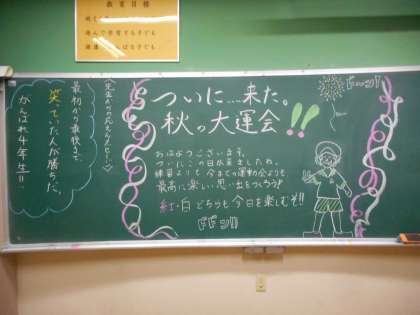 教育目標
ついに…来た。
秋の大運会!!
おはようございます。
ついにこの日が来ましたね。
練習よりも今までの運動会よりも
最高に楽しい思い出をつくろう!
紅・白どちらも今日を楽しむぞ!!
ドドン!!
最初から最後まで、
笑っていた人が勝ちだ。
がんばれ4年生!!